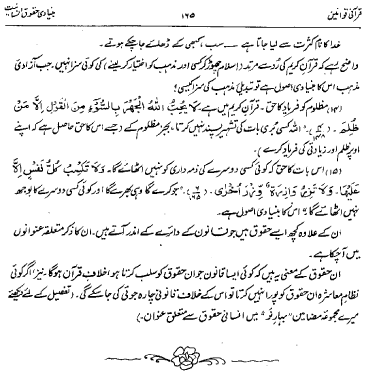 قرآنی قوانین ۱۶۵ بنیادی حقوق انسانیت
خدا کا نام کثرت سے لیا جاتا ہے — سب کبھی کے ڈھائے جا چکے ہوتے۔
واضح رہے کہ قرآن کریم کی رُو سے مرتد (اسلام چھوڑ کر کسی اور مذہب کو اختیار کر لینے) کی کوئی سزا نہیں۔ جب آزادیٔ
مذہب اس کا بنیادی اصول ہے تو تبدیلیٔ مذہب کی سزا کیسی؟
(۱۴) مظلوم کو فریاد کا حق۔ قرآن کریم میں ہے لَا يُحِبُّ اللّٰهُ الْجَهْرَ بِالسُّوْٓءِ مِنَ الْقَوْلِ اِلَّا مَنْ
ظُلِمَ۔ (۴/۱۴۸) "اللہ کسی بُری بات کی تشہیر پسند نہیں کرتا۔ بجز مظلوم کے جسے اس کا حق حاصل ہے کہ اپنے
اوپر ظلم اور زیادتی کی فریاد کرے)۔
(۱۵) اس بات کا حق کہ کوئی کسی دوسرے کی ذمہ داری کو نہیں اٹھائے گا۔ وَلَا تَكْسِبُ كُلُّ نَفْسٍ اِلَّا
عَلَيْهَا۔ وَلَا تَزِرُ وَازِرَةٌ وِّزْرَ اُخْرٰى۔ (۶/۱۶۵)۔ "جو کرے گا وہی بھرے گا اور کوئی کسی دوسرے کا بوجھ
نہیں اٹھائے گا" اس کا بنیادی اصول ہے۔
ان کے علاوہ کچھ ایسے حقوق ہیں جو قانون کے دائرے کے اندر آتے ہیں۔ ان کا ذکر متعلقہ عنوانوں
میں آ چکا ہے۔
ان حقوق کے معنی یہ ہیں کہ کوئی ایسا قانون جو ان حقوق کو سلب کرتا ہو خلاف قرآن ہو گا۔ نیز اگر کوئی
نظام معاشرہ ان حقوق کو پورا نہیں کرتا تو اس کے خلاف قانونی چارہ جوئی کی جا سکے گی۔ (تفصیل کے لئے دیکھئے
میرے مجموعہ مضامین "بہارِ نو" میں انسانی حقوق سے متعلق عنوان۔)